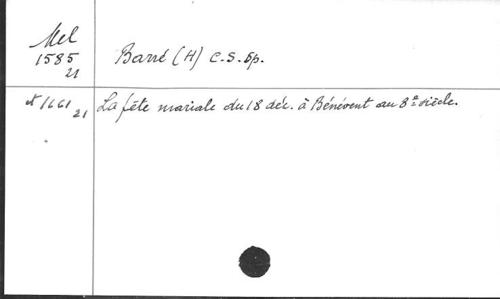 Mel
1585
21
Barré (H) C.S.Sp.
et 1661
21
La fête mariale du 18 déc. à Bénévent au 8e siècle.